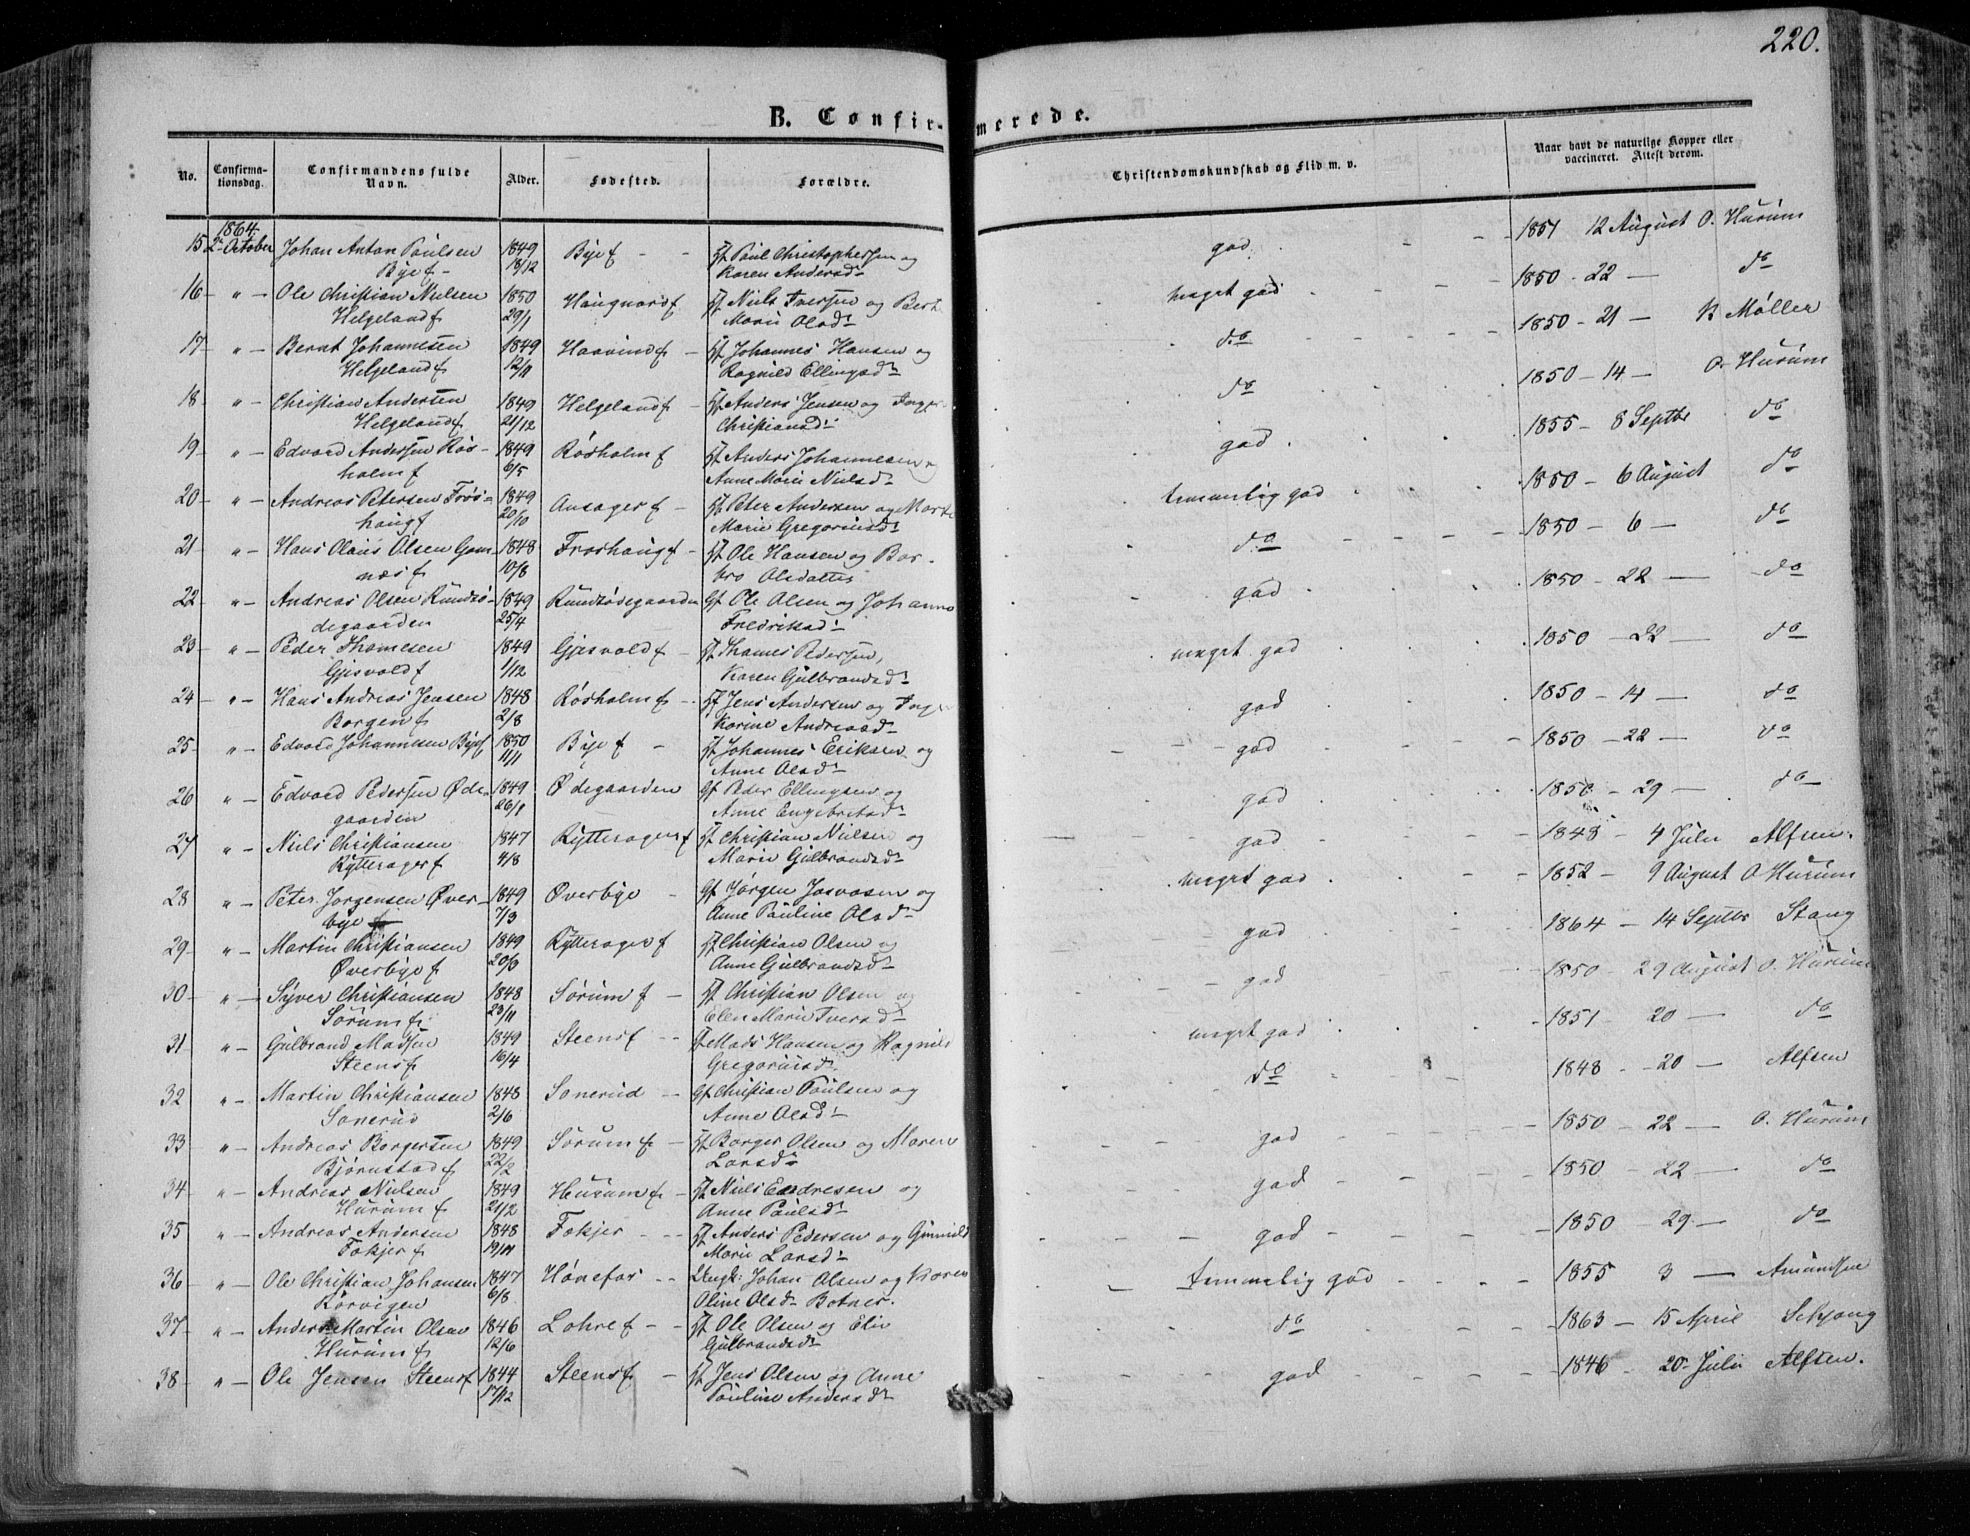 220.
B. Confirmerede.
No. Confirmationsdag. Confirmandens fulde Navn. Alder. Fødested. Forældre. Christendomskundskab og Flid m. v. Naar havt de naturlige Kopper eller vaccineret. Attest derom.
1864
15 2. October Johan Anton Paulsen 1849 Bye f Paul Christophersen og god 1851 12 August O. Hurum
Bye f 18/12 Karen Andersd
16 " Ole Christian Nielsen 1850 Niels Iversen og meget god 1850 - 22 — do
Helgeland f 29/1 Marie Olsd
17 " Bernt Johannesen 1849 Johannes Hansen og do 1850 - 21 — Møller
Helgeland f 12/11 Ragnild Ellingsd
18 " Christian Andersen 1849 Helgeland f Anders Jensen og Inger do 1850 - 14 — O. Hurum
Helgeland f 21/12 Christiansd
19 " Edvard Andersen Røs- 1849 Røsholm f Anders Johannesen og god 1855 - 8 Septbr do
holm f 6/5 Anne Marie Nielsd
20 " Andreas Petersen Frøs- 1849 Ansager f Peter Andersen og temmelig god 1850 - 6 August do
haug f 20/10 Marie Gregoriusd
21 " Hans Olaus Olsen Gom- 1848 Froshaug f Ole Hansen og Bar- do 1850 - 6 — do
næs f 10/8 bro Olsdatter
22 " Andreas Olsen 1849 Ole Olsen og Johanne god 1850 - 22 — do
degaarden 25/4 Fredriksd
23 " Peder Thomesen 1849 Gjesvold f Thomes Pedersen, meget god 1850 - 22 — do
Gjesvold f 1/12 Karen Gulbrandsd
24 " Hans Andreas Jensen 1848 Røsholm f Jens Andersen og Inger god 1850 - 14 — do
Borgen f 2/8 Karine Andreasd
25 " Edvard Johannesen Bye f 1850 Bye f Johannes Eriksen og god 1850 - 22 — do
11/1 Anne Olsd
26 " Edvard Pedersen Øde- 1849 Ødegaarden Gf Peder Ellingsen og god 1850 - 29 — do
gaarden 26/1 Anne Engebretsd
27 " Niels Christiansen 1847 Rytterager f Christian Nielsen og god 1848 - 4 Juli Alfsen.
Rytterager f 4/8 Marie Gulbrandsd
28 " Peter Jørgensen Øver- 1849 Øverbye Gf Jørgen og meget god 1852 - 9 August O Hurum
bye 7/3 Anne Pauline Olsd
29 " Martin Christiansen 1849 Rytterager f Christian Olsen og god 1864 - 14 Septbr Stang
Øverbye f 20/3 Anne Gulbrandsd
30 " Syver Christiansen 1848 Sørum f Christian Olsen og god 1850 - 29 August O. Hurum
Sørum f 23/11 Elen Marie Iversd
31 " Gulbrand Madsen 1849 Steens f Mads Hansen og Ragnild meget god 1851 - 20 — do
Steens f 16/4 Gregoriusd
32 " Martin Christiansen 1848 Sonerud Gf Christian Paulsen og do 1848 - 20 — Alfsen
Sonerud 2/6 Anne Olsd
33 " Andreas Borgersen 1849 Sørum f Borger Olsen og Maren god 1850 - 22 — O. Hurum
Bjørnstad f 22/2 Larsd
34 " Andreas Nielsen 1849 Hurum f Niels Endresen og god 1850 - 22 — do
Hurum f 21/2 Anne Paulsd
35 " Andreas Andersen 1848 Fokjer Anders Pedersen og Gunnild god 1850 - 29 — do
Fokjer f 19/11 Marie Larsd
36 " Ole Christian Johansen 1847 Hønefos Ungk: Johan Olsen og Karen temmelig god 1855 3 — Amundsen
Rørvigen 6/8 Oline Olsd Botner.
37 " Anders Martin Olsen 1846 Lohre f Ole Olsen og Eliv do 1863 - 15 April
Hurum f 12/6 Gulbrandsd
38 " Ole Jensen Steens f 1844 Steens f Jens Olsen og Anne god 1846 - 20 Juli Alfsen.
17/12 Pauline Andersd